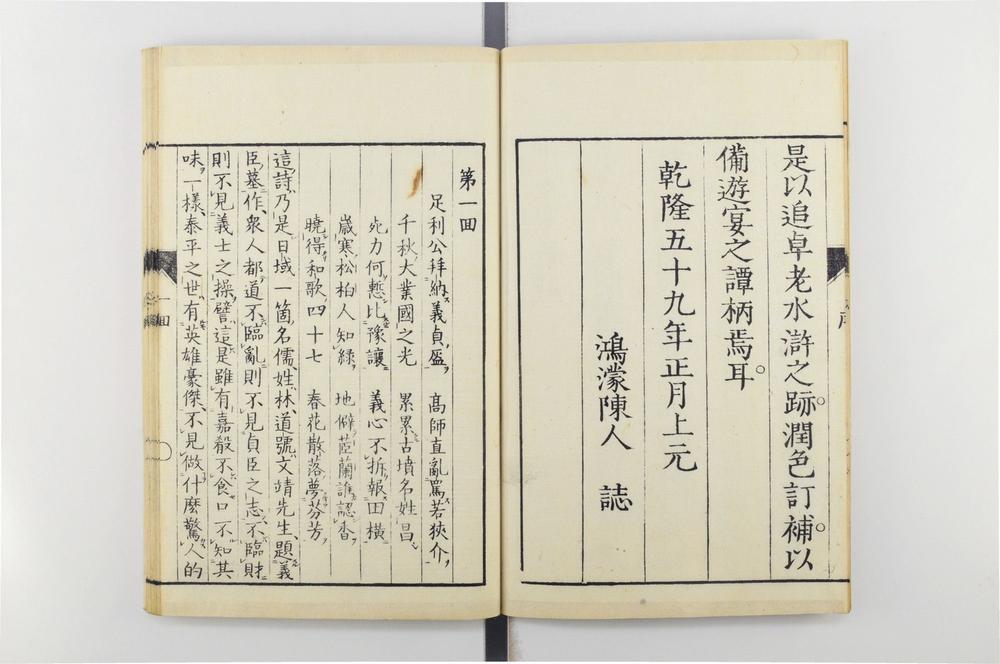 是以追卓老水滸之跡。潤色訂補。以
備遊宴之譚柄焉耳。
乾隆五十九年正月上元
鴻濛陳人 誌
第一回
足利公拜納義貞盔 高師直亂罵若狹介
千秋大業國之光 累累古墳名姓昌
死力何慙比豫讓 義心不拆報田橫
嵗寒松柏人知綠 地僻茝蘭誰認香
曉得和歌四十七 春花散落夢芬芳
這詩乃是日域一箇名儒姓林道號文靖先生題義
臣墓作衆人都道不臨亂則不見貞臣之志不臨財
則不見義士之操譬這是雖有嘉殽不食口不知其
味一樣泰平之世有英雄豪傑不見做什麽驚人的
一回